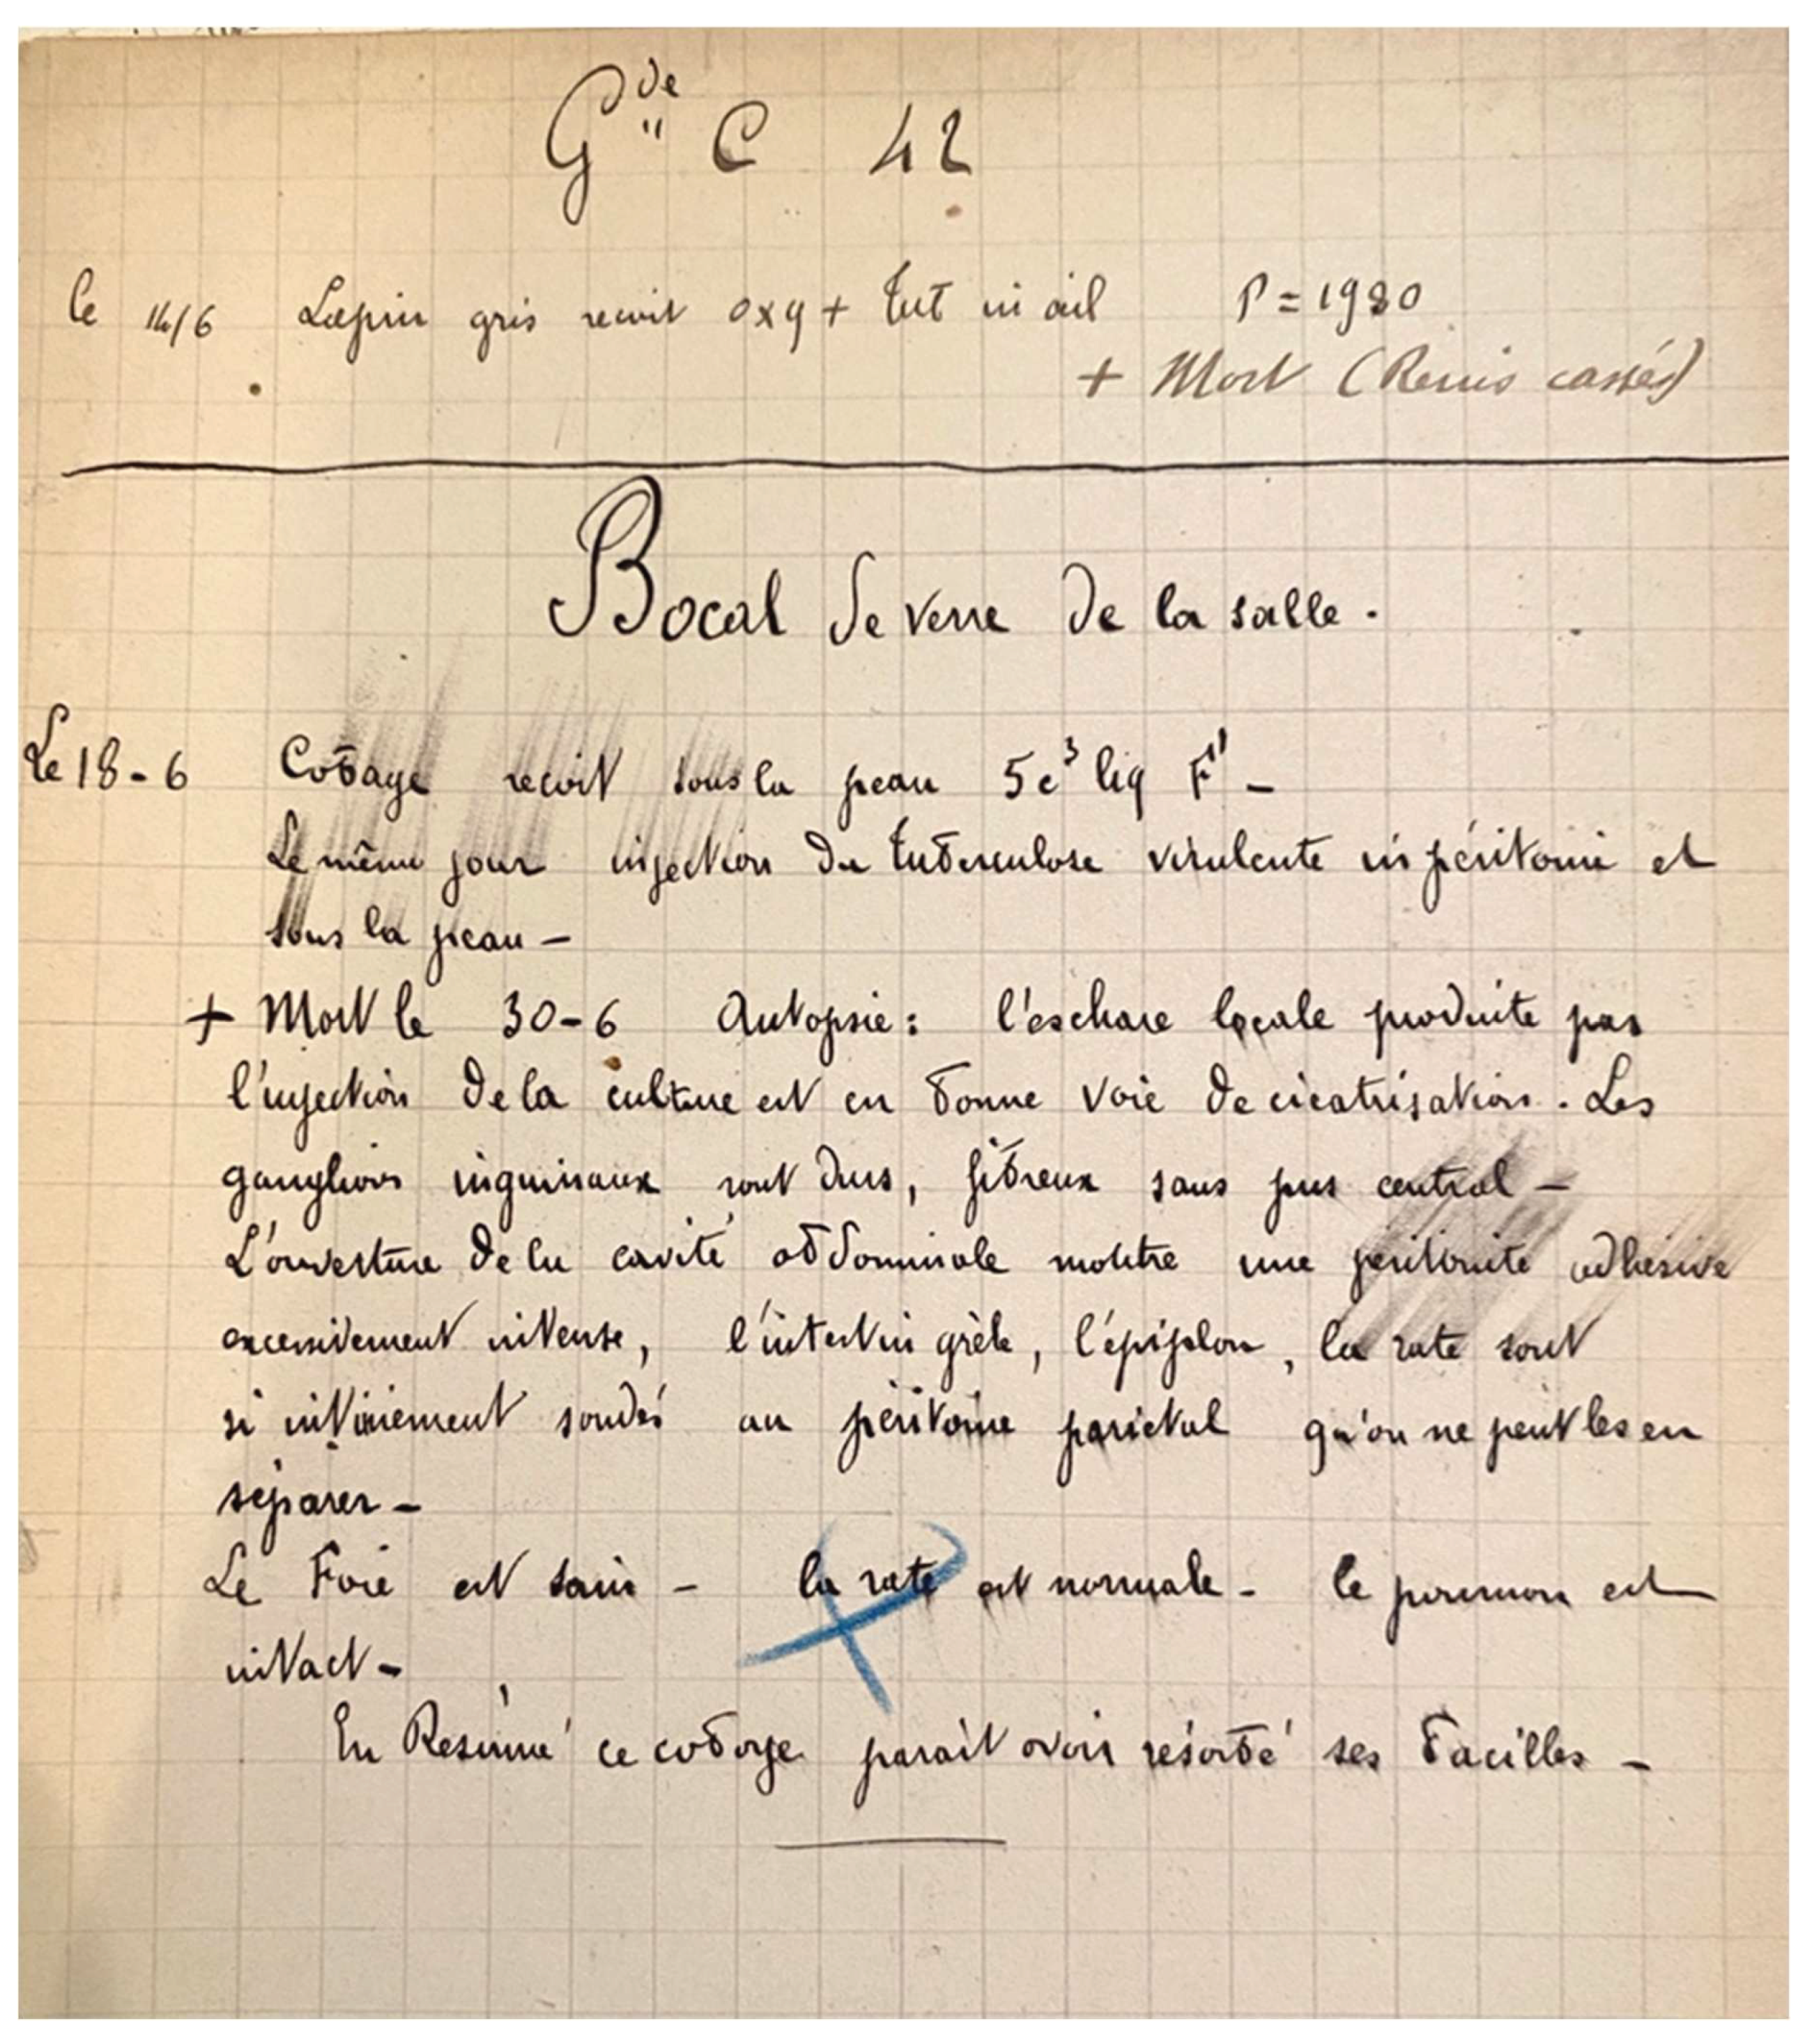 Gde C 42
le 14/6 Lapin gris recoit oxy + tub in œil P = 1980
+ Mort (Reins cassés)
Bocal de verre de la salle.
Le 18-6 Cobaye recoit sous la peau 5c³ liq F' -
Le même jour injection de tuberculose virulente in péritoine et
sous la peau -
+ Mort le 30-6 Autopsie: l'eschare locale produite par
l'injection de la culture est en bonne voie de cicatrisation. Les
ganglions inguinaux sont durs, fibreux sans pus central -
L'ouverture de la cavité abdominale montre une péritonite adhésive
excessivement intense, l'intestin grèle, l'épiploon, la rate sont
si intimement soudés au péritoine pariétal qu'on ne peut les en
séparer -
Le Foie est sain - la rate est normale - le poumon est
intact -
En Résumé ce cobaye parait avoir résorbé ses bacilles -